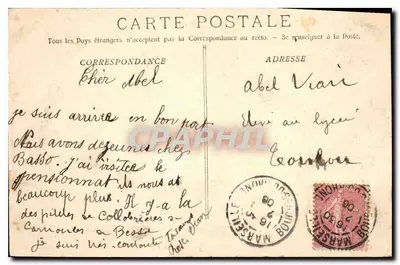 CARTE POSTALE
Tous les Pays étrangers n'acceptent pas la Correspondance au recto. - Se renseigner à la Poste.
CORRESPONDANCE
Cher Abel
je suis arrivée en bon port
Nous avons dejeuner chez
Basso. j'ai visitée le
pensionnat ils nous at
beaucoup plus. Il y a la
des pilules de Collobrières a
Carnoules a Besse
je suis très contente
ADRESSE
Abel Viari
éleve au lycée
Toulon
CARPHIL
MARSEILLE